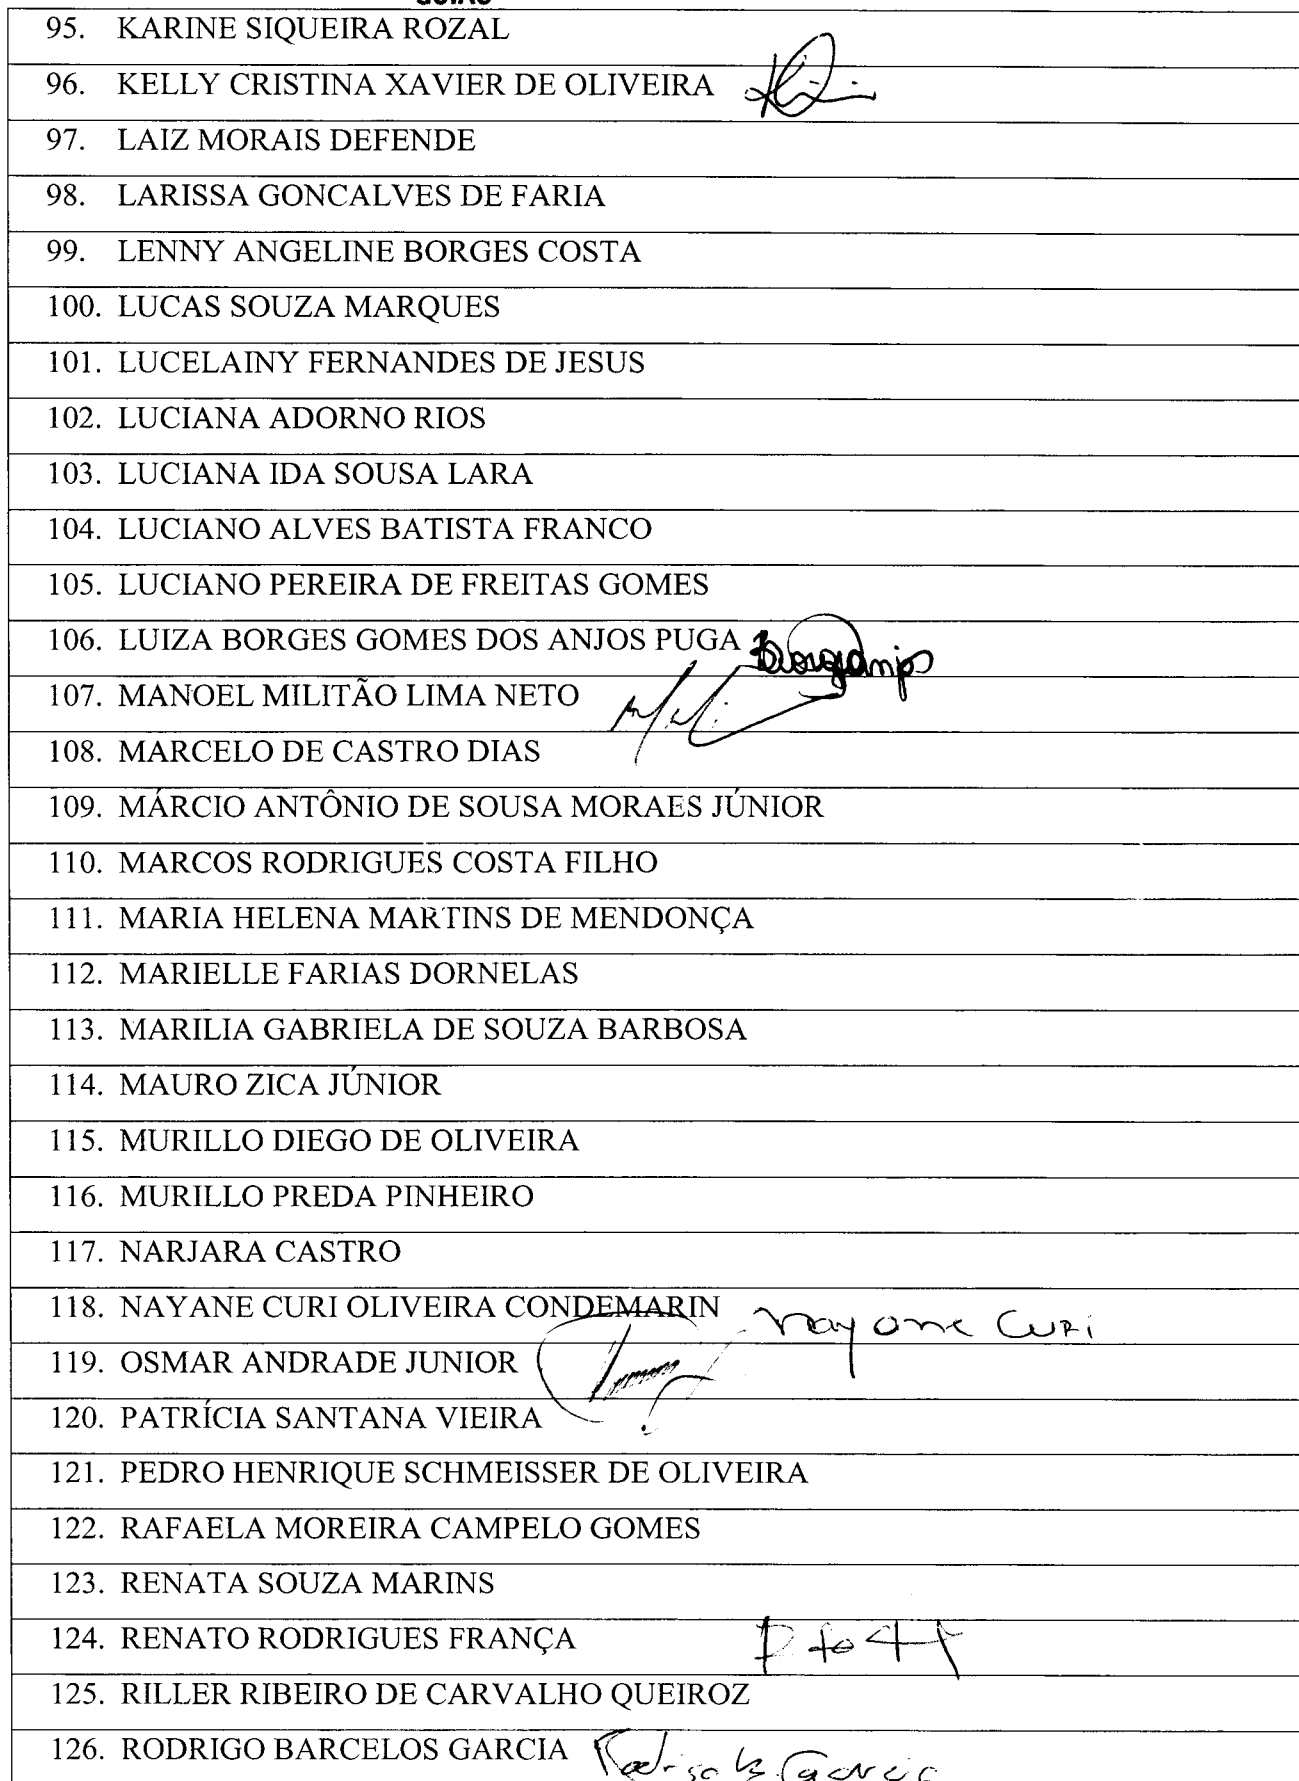 95. KARINE SIQUEIRA ROZAL
96. KELLY CRISTINA XAVIER DE OLIVEIRA
97. LAIZ MORAIS DEFENDE
98. LARISSA GONCALVES DE FARIA
99. LENNY ANGELINE BORGES COSTA
100. LUCAS SOUZA MARQUES
101. LUCELAINY FERNANDES DE JESUS
102. LUCIANA ADORNO RIOS
103. LUCIANA IDA SOUSA LARA
104. LUCIANO ALVES BATISTA FRANCO
105. LUCIANO PEREIRA DE FREITAS GOMES
106. LUIZA BORGES GOMES DOS ANJOS PUGA
107. MANOEL MILITÃO LIMA NETO
108. MARCELO DE CASTRO DIAS
109. MÁRCIO ANTÔNIO DE SOUSA MORAES JÚNIOR
110. MARCOS RODRIGUES COSTA FILHO
111. MARIA HELENA MARTINS DE MENDONÇA
112. MARIELLE FARIAS DORNELAS
113. MARILIA GABRIELA DE SOUZA BARBOSA
114. MAURO ZICA JÚNIOR
115. MURILLO DIEGO DE OLIVEIRA
116. MURILLO PREDA PINHEIRO
117. NARJARA CASTRO
118. NAYANE CURI OLIVEIRA CONDEMARIN Nayane Curi
119. OSMAR ANDRADE JUNIOR
120. PATRÍCIA SANTANA VIEIRA
121. PEDRO HENRIQUE SCHMEISSER DE OLIVEIRA
122. RAFAELA MOREIRA CAMPELO GOMES
123. RENATA SOUZA MARINS
124. RENATO RODRIGUES FRANÇA
125. RILLER RIBEIRO DE CARVALHO QUEIROZ
126. RODRIGO BARCELOS GARCIA Rodrigo B Garcia